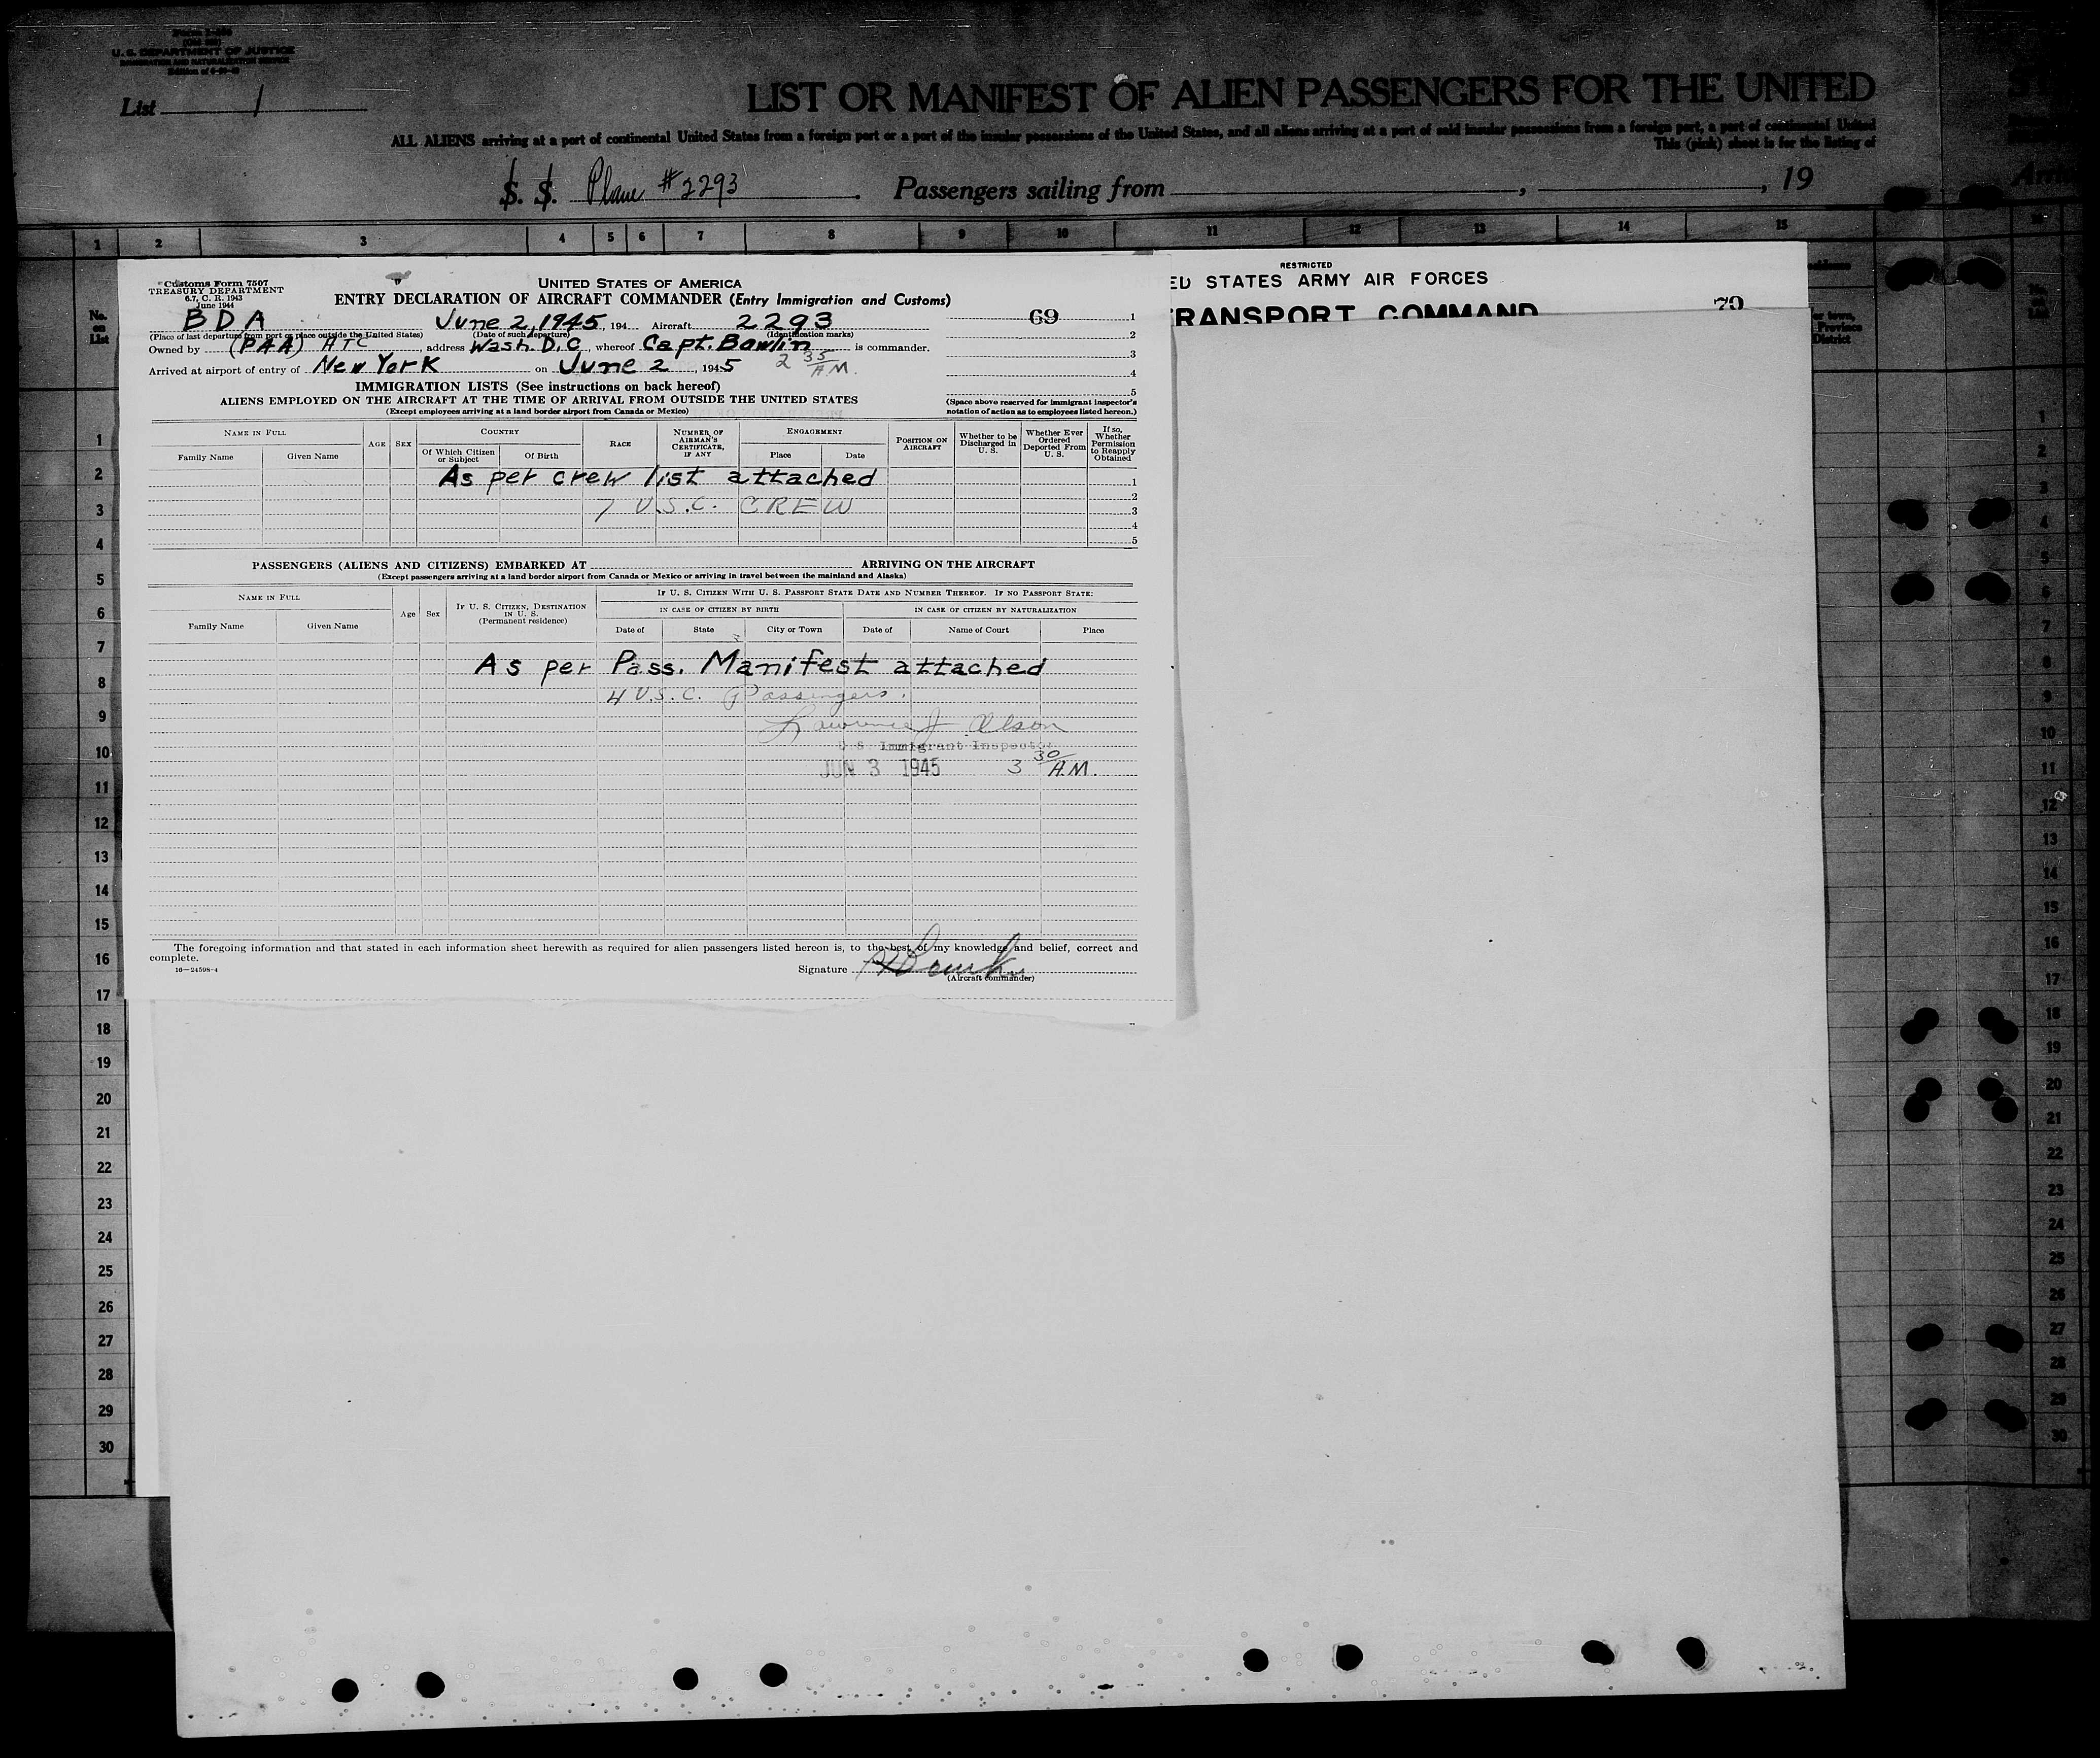 U. S. DEPARTMENT OF JUSTICE
IMMIGRATION AND NATURALIZATION SERVICE
List 1
LIST OR MANIFEST OF ALIEN PASSENGERS FOR THE UNITED
ALL ALIENS arriving at a port of continental United States from a foreign port or a port of the insular possessions of the United States, and all aliens arriving at a port of said insular possessions from a foreign port, a port of continental United
This (pink) sheet is for the listing of
S. S. Plane #2293 . Passengers sailing from , , 19
1 2 3 4 5 6 7 8 9 10 11 12 13 14 15
No. on List
Customs Form 7507
TREASURY DEPARTMENT
6.7, C. R. 1943
June 1944
UNITED STATES OF AMERICA
ENTRY DECLARATION OF AIRCRAFT COMMANDER (Entry Immigration and Customs)
BDA June 2, 1945, 194 Aircraft 2293
(Place of last departure from port or place outside the United States) (Date of such departure) (Identification marks)
Owned by (PAA) ATC address Wash. D.C., whereof Capt. Bowlin is commander.
Arrived at airport of entry of New York on June 2, 1945 2 35 A.M.
69 1
2
3
4
5
(Space above reserved for immigrant inspector's notation of action as to employees listed hereon.)
IMMIGRATION LISTS (See instructions on back hereof)
ALIENS EMPLOYED ON THE AIRCRAFT AT THE TIME OF ARRIVAL FROM OUTSIDE THE UNITED STATES
(Except employees arriving at a land border airport from Canada or Mexico)
NAME IN FULL
Family Name Given Name
AGE SEX
COUNTRY
Of Which Citizen or Subject Of Birth
RACE
NUMBER OF AIRMAN'S CERTIFICATE, IF ANY
ENGAGEMENT
Place Date
POSITION ON AIRCRAFT
Whether to be Discharged in U. S.
Whether Ever Ordered Deported From U. S.
If so, Whether Permission to Reapply Obtained
As per crew list attached 1
2
7 U.S.C. CREW 3
4
5
PASSENGERS (ALIENS AND CITIZENS) EMBARKED AT ARRIVING ON THE AIRCRAFT
(Except passengers arriving at a land border airport from Canada or Mexico or arriving in travel between the mainland and Alaska)
NAME IN FULL
Family Name Given Name
Age Sex
IF U. S. CITIZEN, DESTINATION IN U. S.
(Permanent residence)
IF U. S. CITIZEN WITH U. S. PASSPORT STATE DATE AND NUMBER THEREOF. IF NO PASSPORT STATE:
IN CASE OF CITIZEN BY BIRTH IN CASE OF CITIZEN BY NATURALIZATION
Date of State City or Town Date of Name of Court Place
As per Pass. Manifest attached
4 U.S.C. Passengers.
Lawrence J Olson
U S Immigrant Inspector
JUN 3 1945 3 30 A.M.
The foregoing information and that stated in each information sheet herewith as required for alien passengers listed hereon is, to the best of my knowledge and belief, correct and
complete.
16—24598-4
Signature
(Aircraft commander)
RESTRICTED
ED STATES ARMY AIR FORCES
RANSPORT COMMAND
70
1
2
3
4
5
6
7
8
9
10
11
12
13
14
15
16
17
18
19
20
21
22
23
24
25
26
27
28
29
30